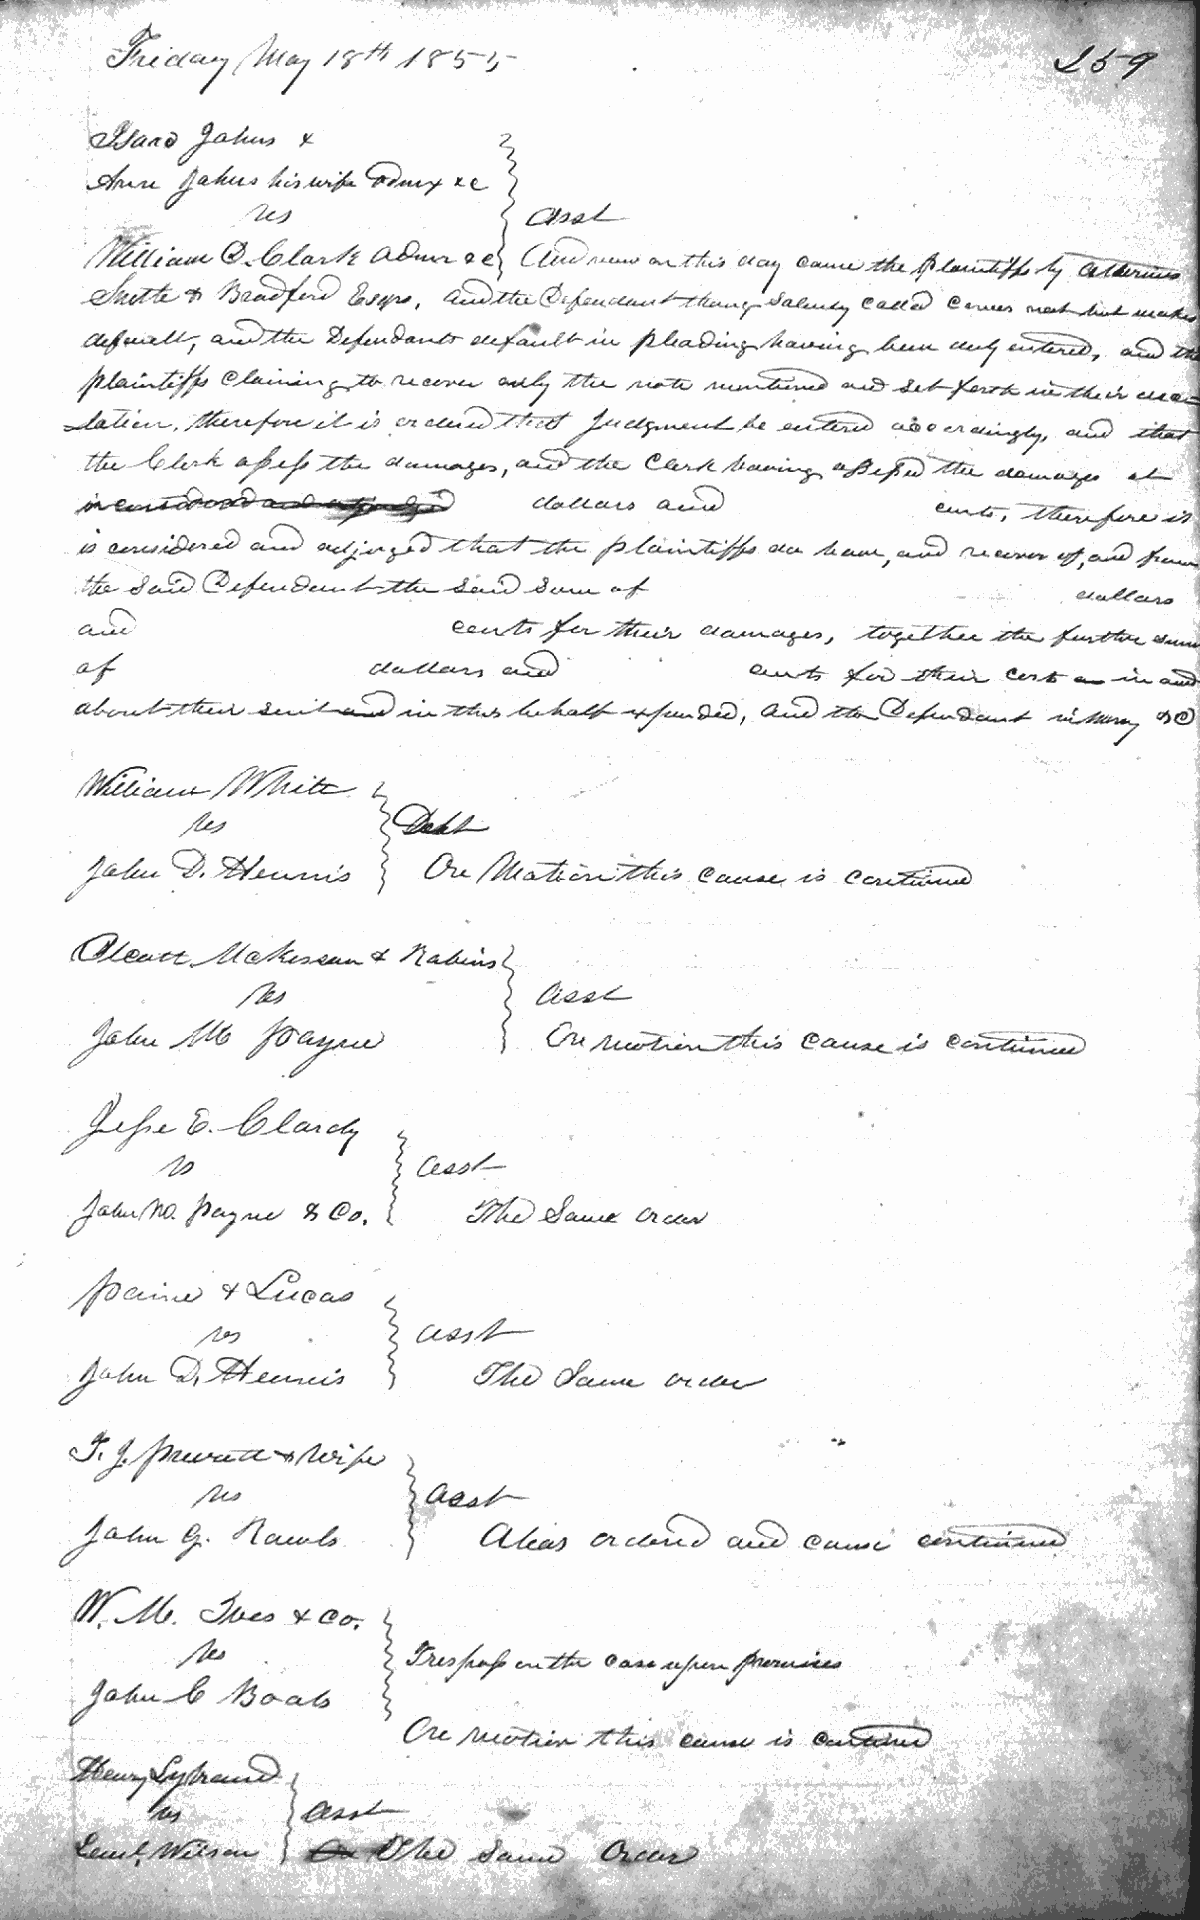 Friday May 18th 1855
259
Isaac Johns &
Ann Johns his wife Admx &c
vs
Asst
William D. Clark Admr &c And now on this day came the Plaintiffs by Attornies
Smith & Bradford Esqrs, and the Defendant though Solemnly called comes not but makes
default, and the Defendants default in pleading having been duly entered, and the
plaintiffs claiming to recover only the note mentioned and set forth in their decla-
ration, therefore it is ordered that Judgment be entered accordingly, and that
the Clerk assess the damages, and the Clerk having assessed the damages at
is considered and adjudged dollars and cents, therefore it
is considered and adjuged that the plaintiffs do have, and recover of, and from
the said Defendant the said sum of dollars
and cents for their damages, together the further sum
of dollars and cents for their cost in and
about their suit and in this behalf expended, and the Defendant in mercy &c
William White
vs
Debt
John D. Hennis On Motion this cause is continued
Olcott McKesson & Robins
vs
Asst
John M Payne On motion this cause is continued
Jesse E. Clardy
vs
Asst
John M. Payne & Co. The Same order
Paine & Lucas
vs
Asst
John D. Hennis The Same order
T. J. Prevatt & Wife
vs
Asst
John G. Rawls Alias ordered and cause continued
W. M. Ives & Co.
vs
Trespass on the case upon promises
John C Boals
On motion this cause is continued
Henry Lybrand
vs
Asst
Leml. Wilson The Same Order